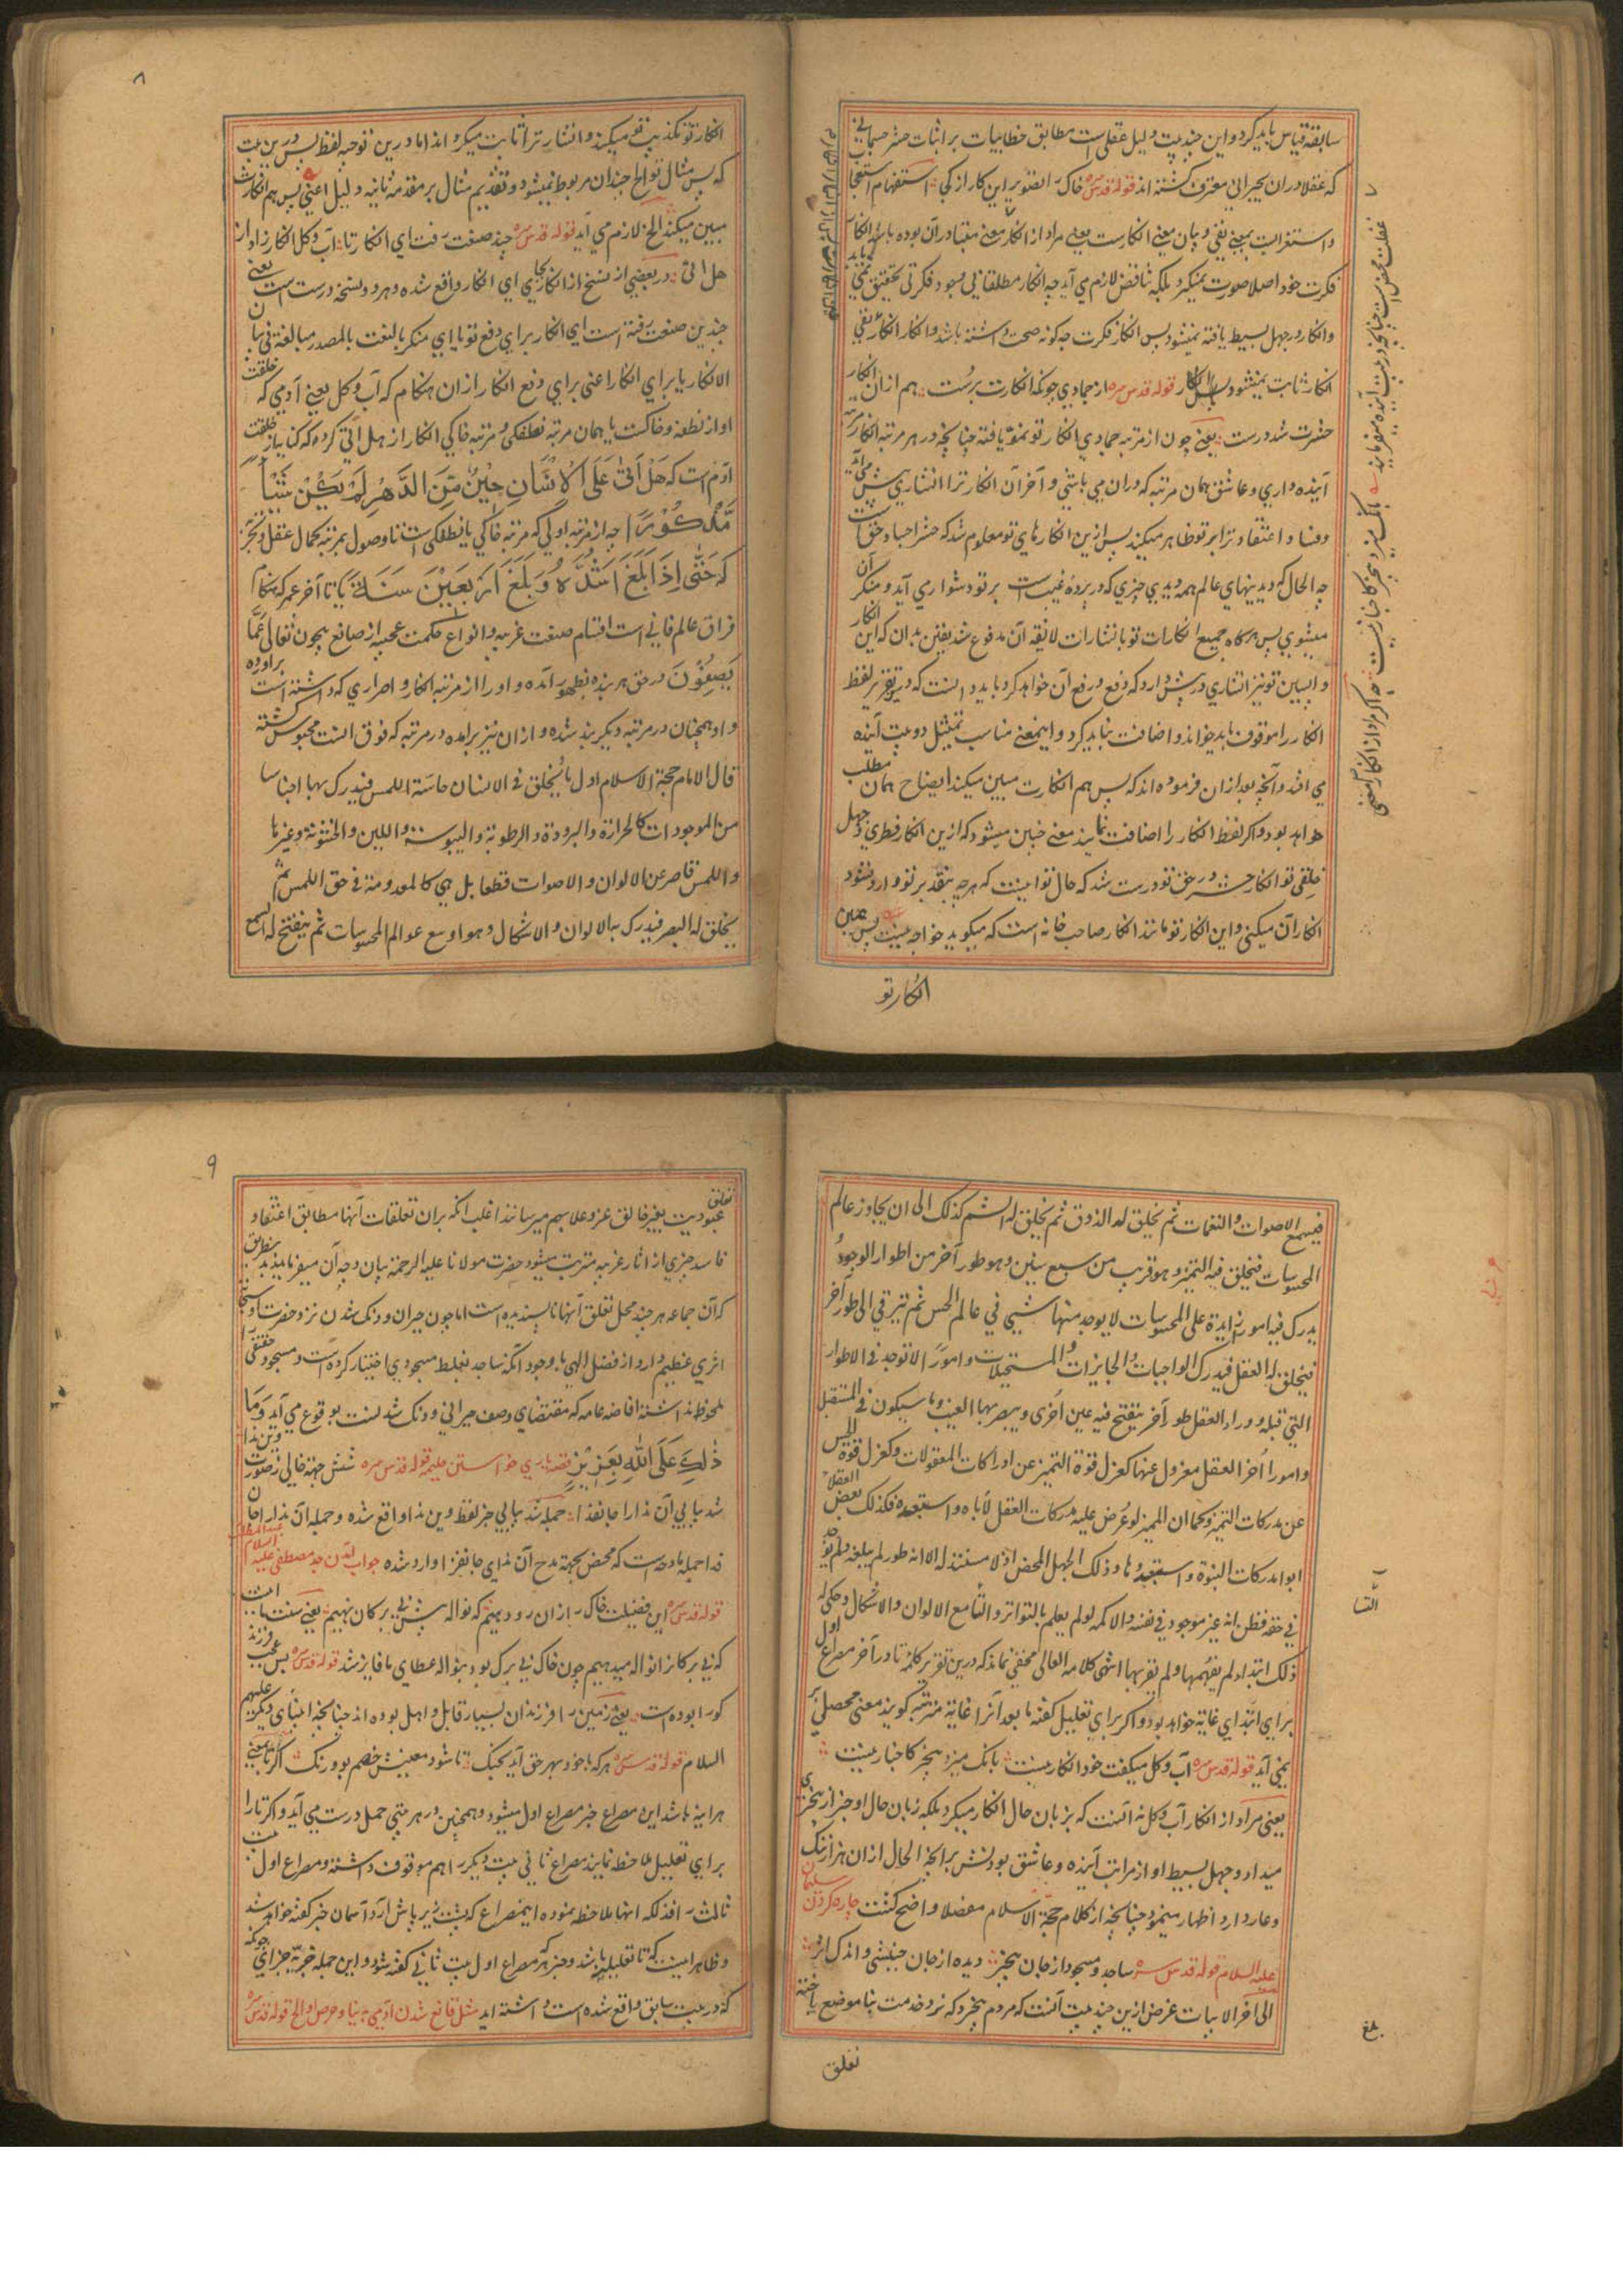 سابقه قیاس باید کرد و این چند بیت دلیل عقلی است مطابق خطابیات بر اثبات حشر جسمانی
که عقلا در ان بحیرانی معترف گشته اند قوله قدس سره خاک را تصویر این کار از کجا استفهام
و استغراب بمعنی نفی و بیان معنی انکارست یعنی مراد از انکار معنی متبادر آن بوده باشد
فکرت خود اصلا صورت نمیگیرد بلکه تناقض لازم می آید چه انکار مطلقا نفی بود و فکرتی تحقیق
و انکار در جهل بسیط یافته نمیشود پس انکار فکرت چه کونه صحت داشته باشد و انکار انکار نفی
انکار ثابت نمیشود قوله قدس سره از جمادی چونکه انکارت برست هم ازان انکار
حشرت شد درست یعنی چون از مرتبه جمادی انکار تو نمو یافته چنانچه در هر مرتبه انکار مرتبه
آینده داری و عاشق همان مرتبه که دران می باشی و آخر آن انکار ترا انتشاری پیش می آید
و فساد اعتقاد ترا بر تو ظاهر میکند پس ازین انکارهای تو معلوم شد که حشر اجساد حق است
چه الحال که دیدنیهای عالم همه دیدی چیزی که در پرده غیب است بر تو دشوار می آید و منکر آن
میشوی پس هرکاه جمیع انکارات تو بانتشارات لاحقه آن مدفوع شد یقین بدان که این انکار
واپسین تو نیز انتشاری در پیش دارد که دفع و رفع آن خواهد کرد باید دانست که درین تقریر لفظ
انکار را موقوف باید خواند و اضافت نباید کرد و اینمعنی مناسب تمثیل دو بیت آینده
می افتد و آنچه بعد ازان فرموده اند که پس هم انکارت مبین میکند ایضاح همان مطلب
خواهد بود و اکر لفظ انکار را اضافت نمایند معنی چنین میشود که ازین انکار فطری و جهل
خلقی تو انکار حشر در حق تو درست شد که حال تو اینست که هرچه بتقدیر بر تو وارد نشود
انکار آن میکنی و این انکار تو مانند انکار صاحب خانه است که میکوید خواجه نیست پس عین
انکار تو
۸
انکار تو تکذیب تو میکند و انتشار ترا ثابت میکرداند اما درین توجیه لفظ پس درین بیت
که پس مثال تو الخ چندان مربوط نمیشود و تقدیم مثال بر مقدمه ثانیه دلیل اعنی پس هم انکارت
مبین میکند الخ لازم می آید قوله قدس سره چند صنعت رفت ای انکار تا آب و کل انکار زاد از
هل اتی در بعضی از نسخ از انکار بجای ای انکار واقع شده و هر دو نسخه درست است یعنی
چندین صنعت رفته است ای انکار برای دفع تو یا ای منکر بالنعت بالمصدر مبالغة فی شان
الانکار یا برای انکار اعنی برای دفع انکار ازان هنکام که آب و کل یعنی آدمی که خلقت
او از نطفه و خاکست یا همان مرتبه نطفکی و مرتبه خاکی انکار از هل اتی کرده که کنایه از خلقت
آدم است که هَلْ اَتٰی عَلَی الْاِنْسَانِ حِیْنٌ مِّنَ الدَّهْرِ لَمْ یَکُنْ شَیْئاً
مَّذْکُوْرًا چه از مرتبه اولی که مرتبه خاکی یا نطفکی است تا وصول بمرتبه کمال عقل و تجربه
که حَتّٰی اِذَا بَلَغَ اَشُدَّهُ وَ بَلَغَ اَرْبَعِیْنَ سَنَةً یا تا آخر عمر که هنکام
فراق عالم فانی است اقسام صنعت غریبه و انواع حکمت عجیبه از صانع بیچون تعالی عَمَّا
یَصِفُوْنَ در حق هر بنده بظهور آمده و او را از مرتبه انکار و اصراری که داشته است برآورده
و او همچنان در مرتبه دیکر بند شده و ازان نیز برآمده در مرتبه که فوق انست محبوس کشته
قال الامام حجة الاسلام اول ما یخلق فی الانسان حاسة اللمس فیدرک بها اجناسا
من الموجودات کالحرارة و البرودة و الرطوبة و الیبوسة و اللین و الخشونة و غیرها
و اللمس قاصر عن الالوان و الاصوات قطعا بل هی کالمعدومة فی حق اللمس ثم
یخلق له البصر فیدرک به الالوان و الاشکال و هو اوسع عوالم المحسوسات ثم ینفتح له السمع
فیسمع الاصوات و النغمات ثم یخلق له الذوق ثم یخلق له الشم کذلک الی ان یجاوز عالم
المحسوسات فیخلق فیه التمیز و هو قریب من سبع سنین و هو طور آخر من اطوار الوجود
یدرک فیه امورا زایدة علی المحسوسات لا یوجد منها شیئ فی عالم الحس ثم یترقی الی طور آخر
فیخلق له العقل فیدرک الواجبات و الجایزات و المستحیلات و امورًا لا توجد فی الاطوار
التی قبله و وراء العقل طور آخر ینفتح فیه عین اُخری و یبصر بها الغیب و ما سیکون فی المستقبل
و امورا اُخر العقل معزول عنها کعزل قوة التمیز عن ادراکات المعقولات و کعزل قوة الحس
عن مدرکات التمیز و کما ان الممیز لو عُرض علیه مدرکات العقل لأباه و استبعده فکذلک بعض العقلاء
ابوا مدرکات النبوة و استبعدوها و ذلک الجهل المحض اذ لا مستند له الا انه طور لم یبلغه و لم یوجد
فی حقه فظن انه غیر موجود فی نفسه و الاکمه لو لم یعلم بالتواتر و التسامع الالوان و الاشکال و حکی له
ذلک ابتداء لم یفهمها و لم یقر بها انتهی کلامه العالی مخفی نماند که درین تقریر کلمه تا در آخر مصراع اول
برای ابتدای غایة خواهد بود و اکر برای تعلیل کفته ما بعد آنرا غایة مترتبه کویند معنی محصلی بر
نمی آید قوله قدس سره آب و کل میکفت خود انکار نیست بانک میزد بیخبر کاخبار نیست
یعنی مراد از انکار آب و کل نه آنست که بزبان حال انکار میکرد بلکه زبان حال او خبر از بیخبری
میداد و جهل بسیط او از مراتب آینده و عاشق بودنش برانچه الحال ازان هزار ننک
و عار دارد اظهار مینمود چنانچه از کلام حجة الاسلام مفصلا واضح کشت چاره کردن سلیمان
علیه السلام قوله قدس سره ساجد و مسجود از جان بیخبر دیده از جان جنبشی و اندک اثر
الی آخر الابیات غرض ازین چند بیت آنست که مردم بیخرد که نرد خدمت بنا موضع باخته
تعلق
بلغ
۹
تعلق عبودیت بغیر خالق عز و علا بهم میرسانند اغلب انکه بران تعلقات آنها مطابق اعتقاد
فاسد چیزی از آثار غریبه مترتب میشود حضرت مولانا علیه الرحمة بیان وجه آن میفرمایند بطریق
که آن جماعه هر چند محل تعلق آنها ناپسندیده است اما چون حیران و دنک شدن نزد حضرت او سبحانه
اثری عظیم دارد از فضل الهی با وجود آنکه ساجد بغلط مسجودی اختیار کرده است و مسجود حقیقی را
ملحوظ نداشته افاضه عامه که مقتضای وصف حیرانی و دنک شدنست بوقوع می آید وَمَا
ذٰلِكَ عَلَی اللّٰهِ بِعَزِیْزٍ قصه یاری خواستن حلیمه قوله قدس سره شش جهة خالی ز صورت وین ندا
شد پیاپی آن ندا را جانفدا جمله شد پیاپی خبر لفظ وین ندا واقع شده و جمله آن ندا را جان
فدا جمله مادحه است که محض بجهة مدح آن ندای جانفزا وارد شده جواب آمدن جد مصطفی علیه السلام
قوله قدس سره این فضیلت خاک را زان رو دهیم که نواله پیش بی برکان نهیم یعنی سنت ما است
که بی برکانرا نواله میدهیم چون خاک بی برک بود بنواله عطای ما فایز شد قوله قدس سره بس عجب فرزند
کورا بوده است یعنی زمین را فرزندان بسیار قابل و اهل بوده اند چنانچه انبیای دیکر علیهم
السلام قوله قدس سره هرکه با خود بهر حق آید بجنک تا شود معنیش خصم بو و رنک اکر تا بمعنی
هر آینه باشد این مصراع خبر مصراع اول میشود و همچنین در هر بیتی حمل درست می آید و اکر تا را
برای تعلیل ملاحظه نمایند مصراع ثانی بیت دیکر را هم موقوف داشته و مصراع اول بیت
ثالث را فذلکه انها ملاحظه نموده اینمصراع که پشت زیر پایش آرد آسمان خبر کفته خواهد شد
و ظاهر اینست که تا تعلیلیه باشد و خبر هر مصراع اول بیت ثانی کفته شود و این جمله خبریه جزای
که در بیت سابق واقع شده است داشته اید مثل قانع شدن آدمی بدنیا و حرص او الخ قوله قدس سره